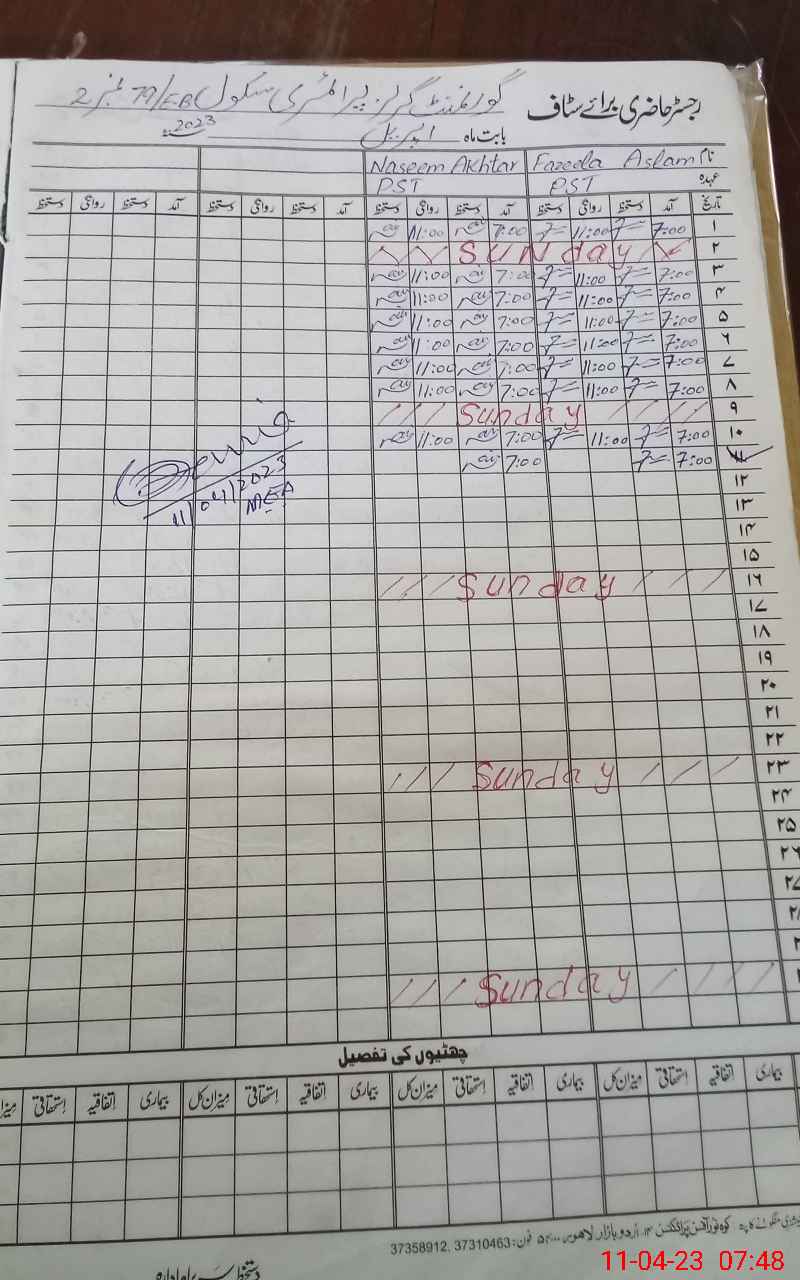 رجسٹر حاضری برائے سٹاف گورنمنٹ گرلز پرائمری سکول 79/EB نمبر 2
بابت ماہ اپریل 2023ء
نام Fazeela Aslam Naseem Akhtar
عہدہ PST PST
تاریخ آمد دستخط روانگی دستخط آمد دستخط روانگی دستخط آمد دستخط روانگی دستخط آمد دستخط روانگی دستخط
۱ 7:00 11:00 7:00 11:00
۲ Sunday
۳ 7:00 11:00 7:00 11:00
۴ 7:00 11:00 7:00 11:00
۵ 7:00 11:00 7:00 11:00
۶ 7:00 11:00 7:00 11:00
۷ 7:00 11:00 7:00 11:00
۸ 7:00 11:00 7:00 11:00
۹ Sunday
۱۰ 7:00 11:00 7:00 11:00
۱۱ 7:00 7:00
11/04/2023
MEA
۱۲
۱۳
۱۴
۱۵
۱۶ Sunday
۱۷
۱۸
۱۹
۲۰
۲۱
۲۲
۲۳ Sunday
۲۴
۲۵
۲۶
Sunday
چھٹیوں کی تفصیل
بیماری اتفاقیہ استحقاقی میزان کل بیماری اتفاقیہ استحقاقی میزان کل بیماری اتفاقیہ استحقاقی میزان کل بیماری اتفاقیہ استحقاقی
اُردو بازار لاہور فون: 37310463, 37358912
11-04-23 07:48